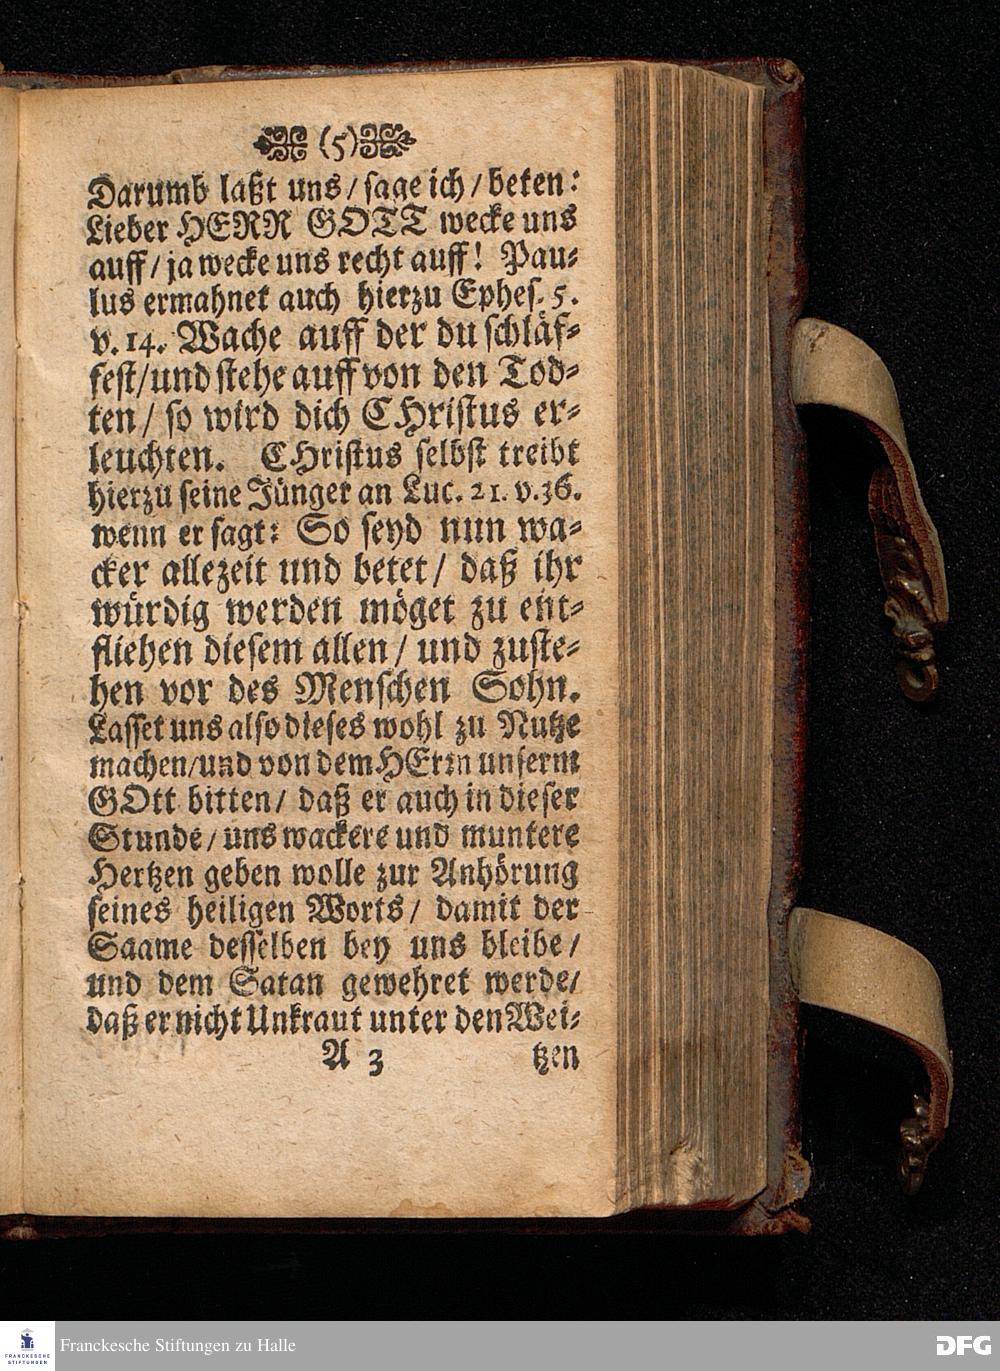 (5)
Darumb laßt uns / sage ich / beten:
Lieber HERR GOTT wecke uns
auff / ja wecke uns recht auff! Pau-
lus ermahnet auch hierzu Ephes. 5.
v. 14. Wache auff der du schläf-
fest / und stehe auff von den Tod-
ten / so wird dich CHristus er-
leuchten. CHristus selbst treibt
hierzu seine Jünger an Luc. 21. v. 36.
wenn er sagt: So seyd nun wa-
cker allezeit und betet / daß ihr
würdig werden möget zu ent-
fliehen diesem allen / und zuste-
hen vor des Menschen Sohn.
Lasset uns also dieses wohl zu Nutze
machen / und von dem HErrn unserm
GOtt bitten / daß er auch in dieser
Stunde / uns wackere und muntere
Hertzen geben wolle zur Anhörung
seines heiligen Worts / damit der
Saame desselben bey uns bleibe /
und dem Satan gewehret werde /
daß er nicht Unkraut unter den Wei-
A 3 tzen
FRANCKESCHE STIFTUNGEN
Franckesche Stiftungen zu Halle
DFG